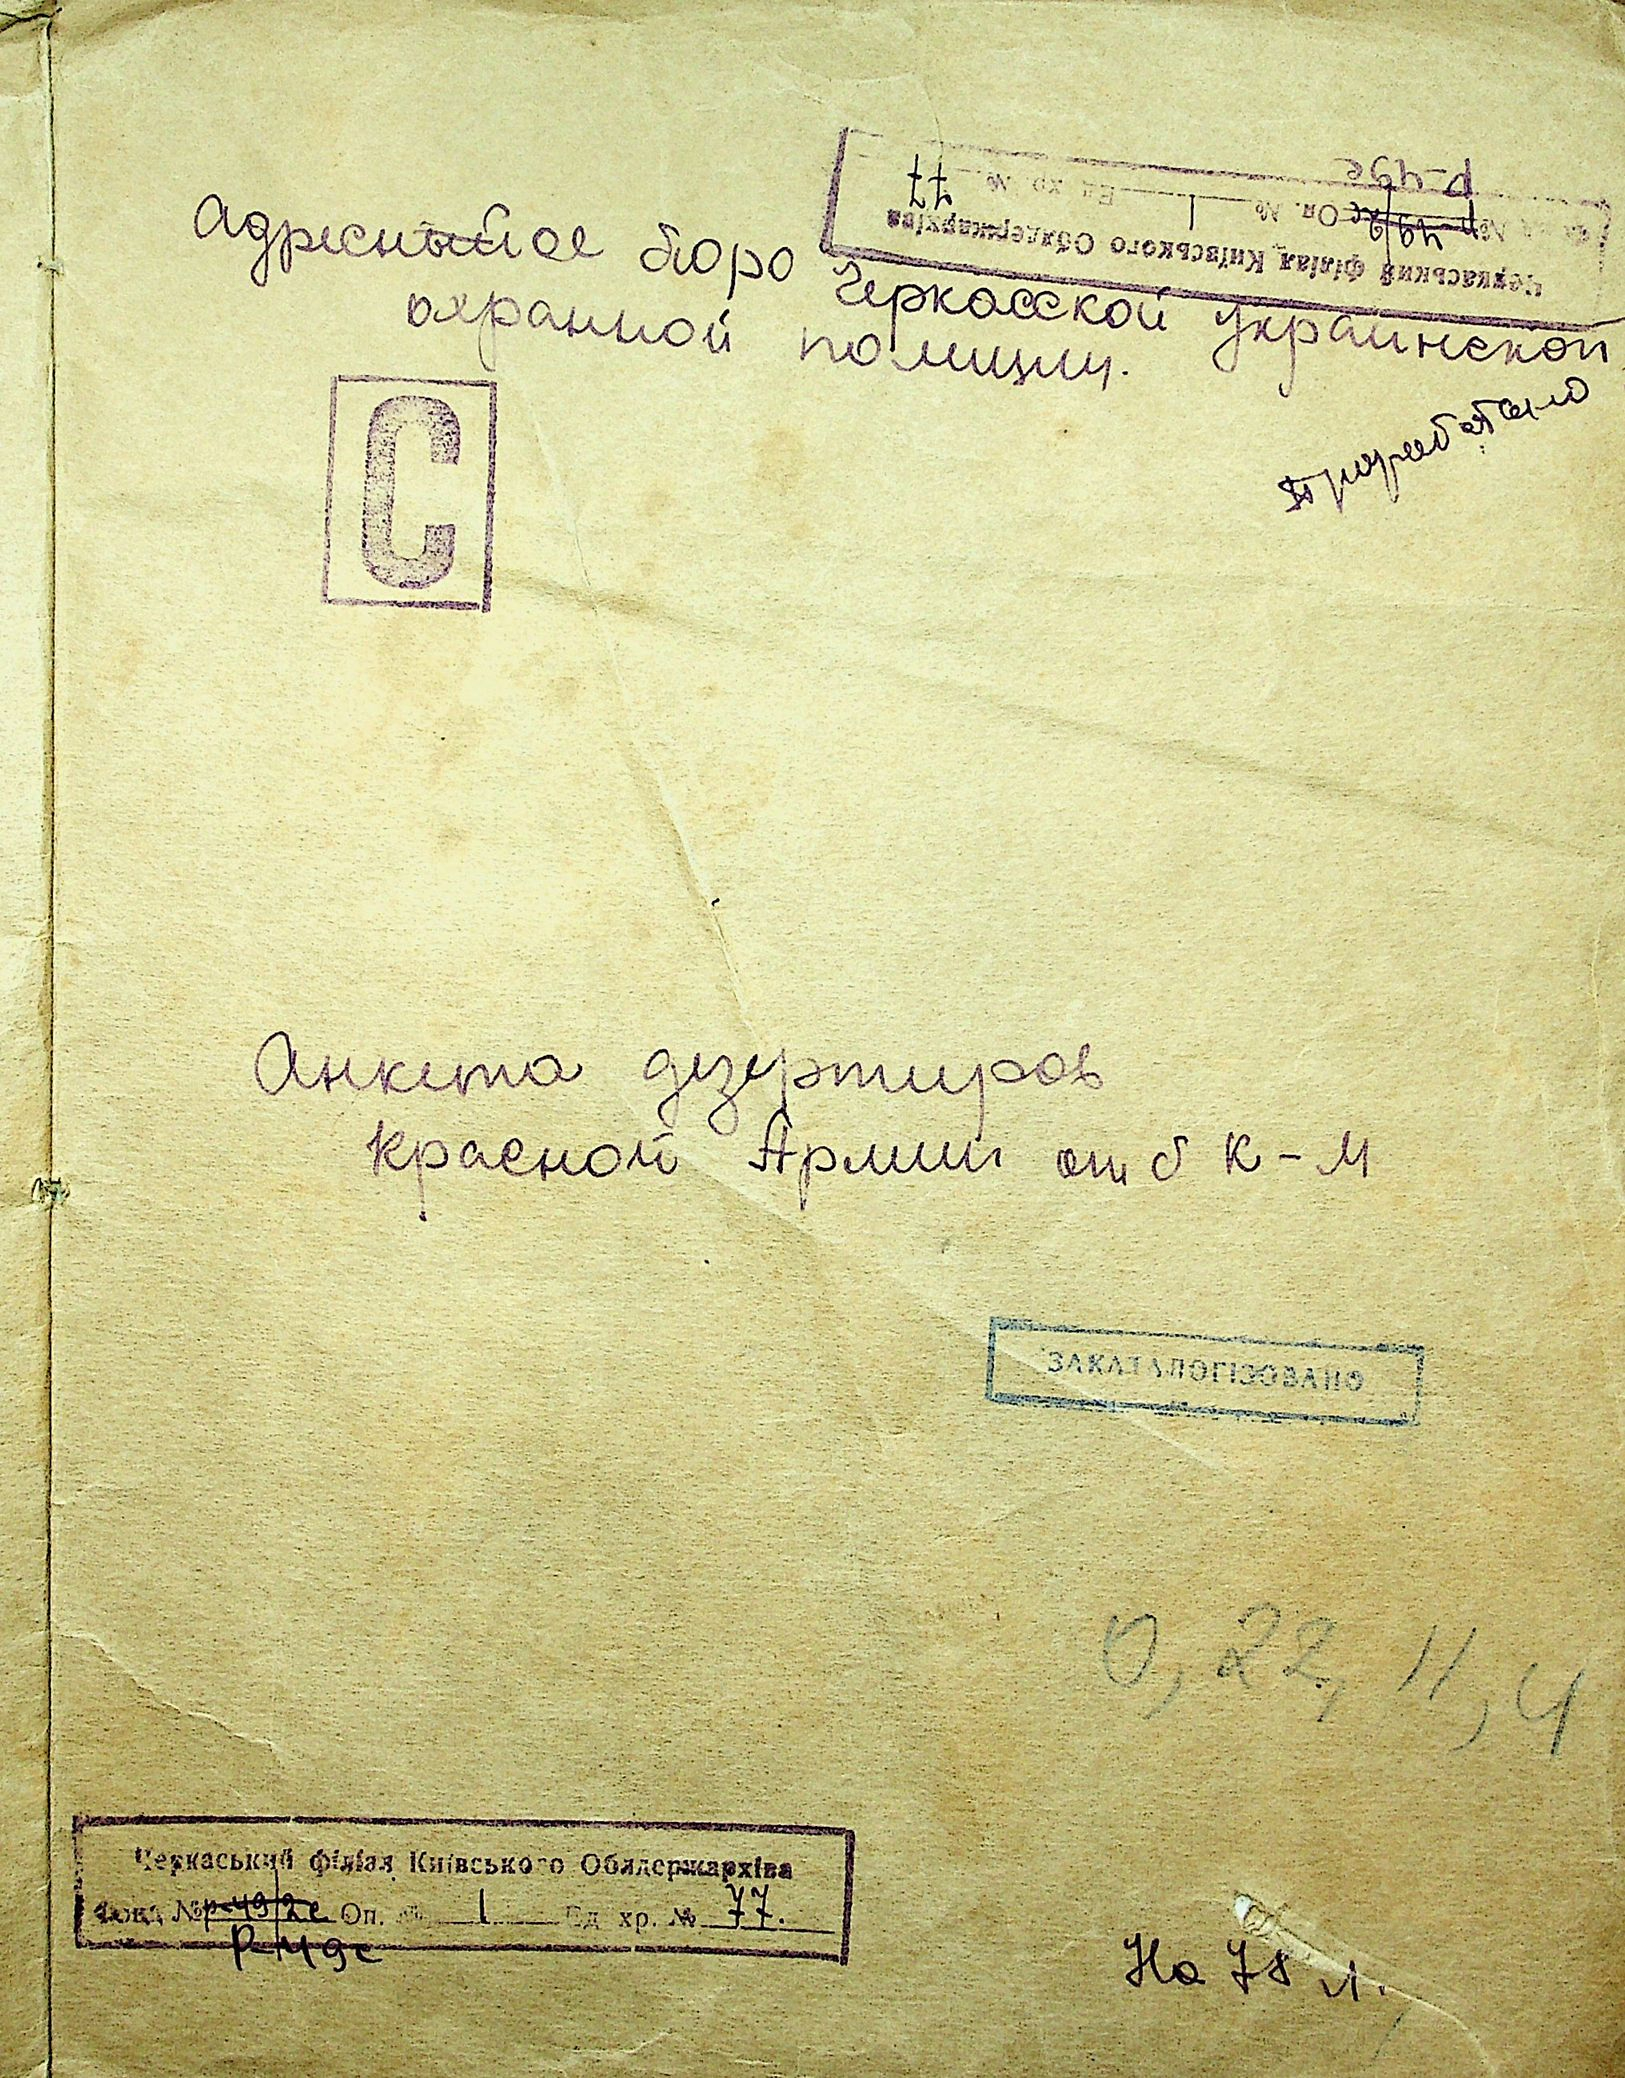 Черкаський філіал Київського Облдержархіва
Фонд № р-49/2с Оп. № 1 Ед. хр. № 77
Р-49с
Адресное бюро Черкасской украинской
охранной полиции.
С
Анкета дезертиров
Красной Армии от б К-М
ЗАКАТАЛОГІЗОВАНО
0, 22, 11, 4
Черкаський філіал Київського Облдержархіва
Фонд № р-49/2с Оп. № 1 Ед. хр. № 77.
Р-49с
На 78 л.